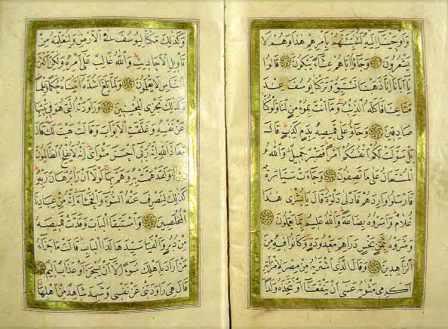 وَأَوْحَيْنَا إِلَيْهِ لَتُنَبِّئَنَّهُمْ بِأَمْرِهِمْ هَذَا وَهُمْ لَا
يَشْعُرُونَ وَجَاؤُا أَبَاهُمْ عِشَاءً يَبْكُونَ قَالُوا
يَا أَبَانَا إِنَّا ذَهَبْنَا نَسْتَبِقُ وَتَرَكْنَا يُوسُفَ عِنْدَ
مَتَاعِنَا فَأَكَلَهُ الذِّئْبُ وَمَا أَنْتَ بِمُؤْمِنٍ لَنَا وَلَوْ كُنَّا
صَادِقِينَ وَجَاؤُا عَلَى قَمِيصِهِ بِدَمٍ كَذِبٍ قَالَ
بَلْ سَوَّلَتْ لَكُمْ أَنْفُسُكُمْ أَمْرًا فَصَبْرٌ جَمِيلٌ وَاللَّهُ
الْمُسْتَعَانُ عَلَى مَا تَصِفُونَ وَجَاءَتْ سَيَّارَةٌ
فَأَرْسَلُوا وَارِدَهُمْ فَأَدْلَى دَلْوَهُ قَالَ يَا بُشْرَى هَذَا
غُلَامٌ وَأَسَرُّوهُ بِضَاعَةً وَاللَّهُ عَلِيمٌ بِمَا يَعْمَلُونَ
وَشَرَوْهُ بِثَمَنٍ بَخْسٍ دَرَاهِمَ مَعْدُودَةٍ وَكَانُوا فِيهِ مِنَ
الزَّاهِدِينَ وَقَالَ الَّذِي اشْتَرَيهُ مِنْ مِصْرَ لِامْرَأَتِهِ
أَكْرِمِي مَثْوَيهُ عَسَى أَنْ يَنْفَعَنَا أَوْ نَتَّخِذَهُ وَلَدًا
وَكَذَلِكَ مَكَّنَّا لِيُوسُفَ فِي الْأَرْضِ وَلِنُعَلِّمَهُ مِنْ
تَأْوِيلِ الْأَحَادِيثِ وَاللَّهُ غَالِبٌ عَلَى أَمْرِهِ وَلَكِنَّ أَكْثَرَ
النَّاسِ لَا يَعْلَمُونَ وَلَمَّا بَلَغَ أَشُدَّهُ آتَيْنَاهُ حُكْمًا وَعِلْمًا
وَكَذَلِكَ نَجْزِي الْمُحْسِنِينَ وَرَاوَدَتْهُ الَّتِي هُوَ فِي بَيْتِهَا
عَنْ نَفْسِهِ وَغَلَّقَتِ الْأَبْوَابَ وَقَالَتْ هَيْتَ لَكَ قَالَ
مَعَاذَ اللَّهِ إِنَّهُ رَبِّي أَحْسَنَ مَثْوَايَ إِنَّهُ لَا يُفْلِحُ الظَّالِمُونَ
وَلَقَدْ هَمَّتْ بِهِ وَهَمَّ بِهَا لَوْلَا أَنْ رَأَى بُرْهَانَ رَبِّهِ
كَذَلِكَ لِنَصْرِفَ عَنْهُ السُّوءَ وَالْفَحْشَاءَ إِنَّهُ مِنْ عِبَادِنَا
الْمُخْلَصِينَ وَاسْتَبَقَا الْبَابَ وَقَدَّتْ قَمِيصَهُ
مِنْ دُبُرٍ وَأَلْفَيَا سَيِّدَهَا لَدَا الْبَابِ قَالَتْ مَا جَزَاءُ
مَنْ أَرَادَ بِأَهْلِكَ سُوءًا إِلَّا أَنْ يُسْجَنَ أَوْ عَذَابٌ أَلِيمٌ
قَالَ هِيَ رَاوَدَتْنِي عَنْ نَفْسِي وَشَهِدَ شَاهِدٌ مِنْ أَهْلِهَا